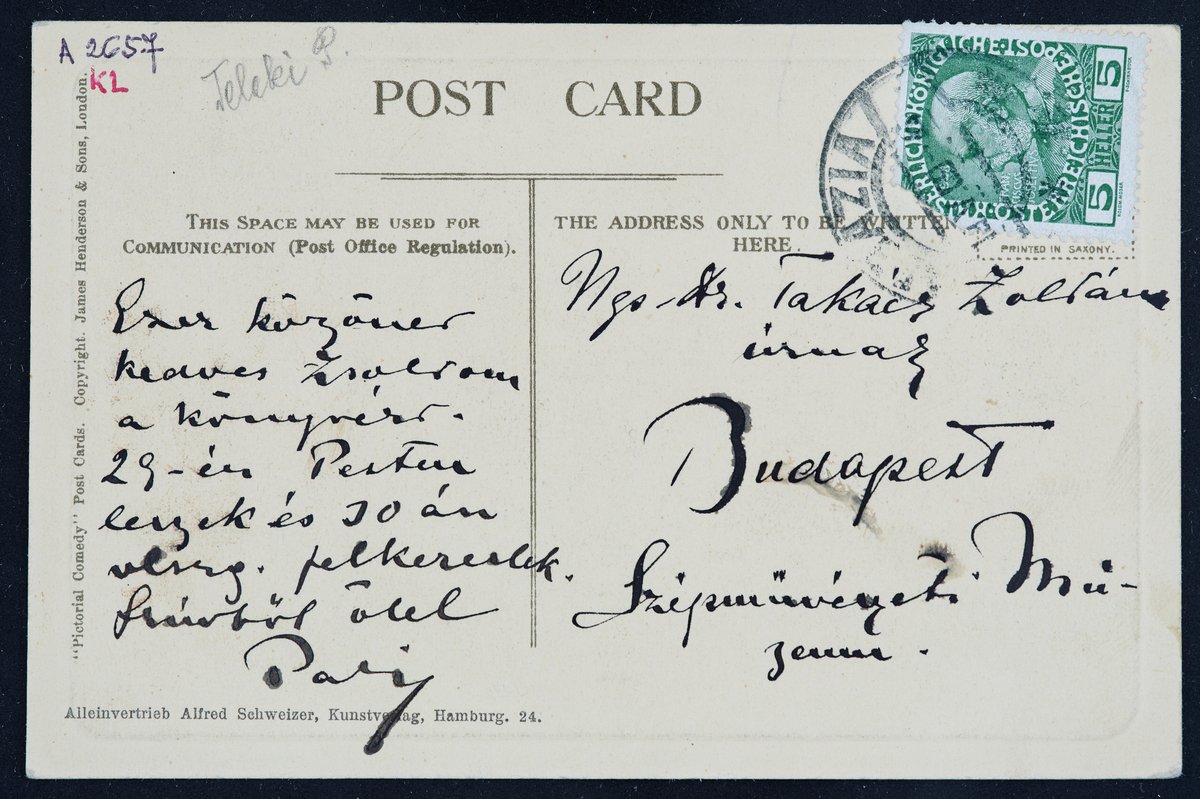 A 2657
KL
Teleki P.
POST CARD
"Pictorial Comedy" Post Cards. Copyright. James Henderson & Sons, London.
THIS SPACE MAY BE USED FOR
COMMUNICATION (Post Office Regulation).
Ezer köszönet
kedves Zsoltom
a könyvért.
29-én Pesten
leszek és 30 án
vlszg. felkereslek.
Szívből ölel
Pali
Alleinvertrieb Alfred Schweizer, Kunstverlag, Hamburg. 24.
5 HELLER 5
THE ADDRESS ONLY TO BE WRITTEN
HERE.
PRINTED IN SAXONY.
Ngs Dr. Takács Zoltán
úrnak
Budapest
Szépművészeti Mú-
zeum.